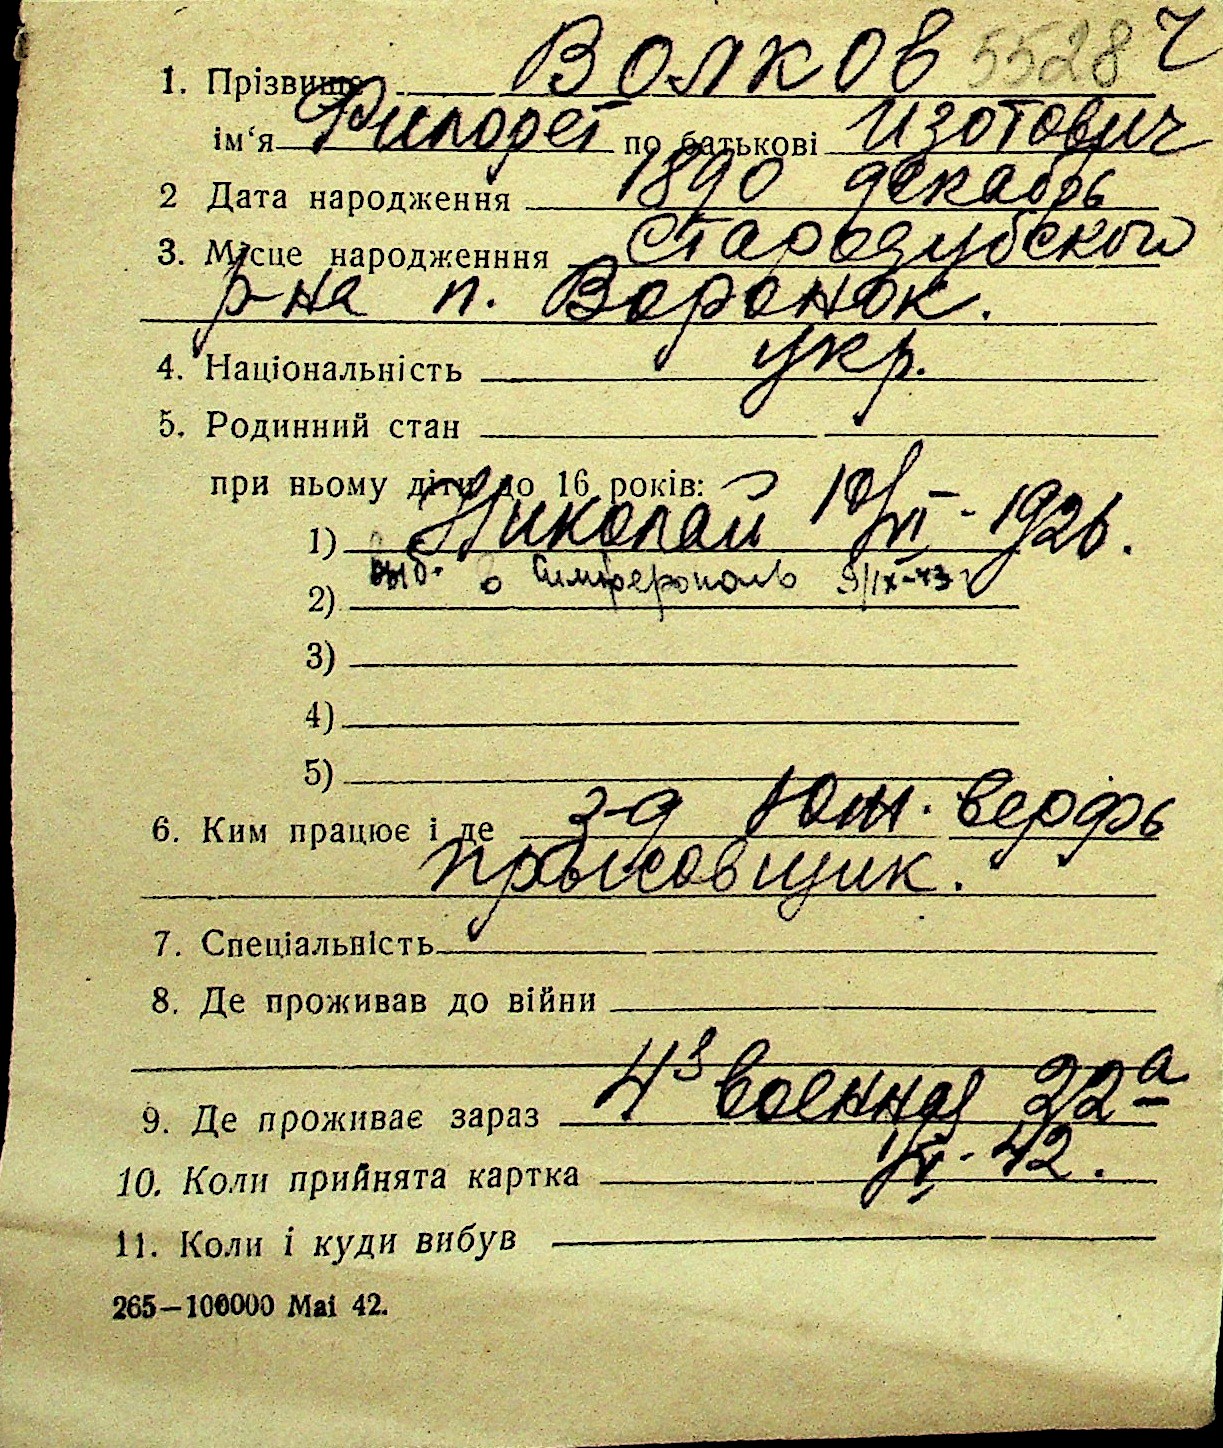 1. Прізвище Волков 5528 ч
ім‘я Филофей по батькові Изотович
2 Дата народження 1890 декабрь
3. Місце народженння Стародубского
р-на п. Воронок.
4. Національність укр.
5. Родинний стан
при ньому діти до 16 років:
1) Николай 10/VI - 1926.
2) выб. в Симферополь 9/IX-43 г
3)
4)
5)
6. Ким працює і де з-д Юж. верфь
прысовщик.
7. Спеціальність
8. Де проживав до війни
9. Де проживає зараз 4 Военная 22а
10. Коли прийнята картка 1/VI - 42.
11. Коли і куди вибув
265—100000 Mai 42.